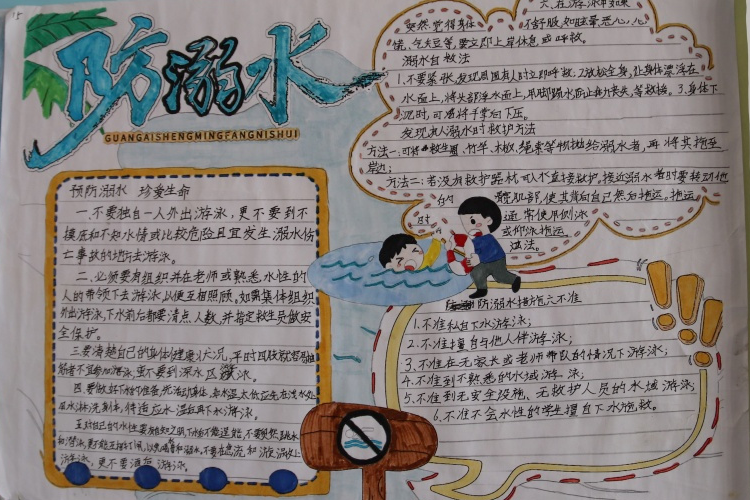 防溺水
GUANGAISHENGMINGFANGNISHUI
预防溺水 珍爱生命
一、不要独自一人外出游泳，更不要到不
摸底和不知水情或比较危险且宜发生溺水伤
亡事故的地方去游泳。
二、必须要有组织并在老师或熟悉水性的
人的带领下去游泳，以便互相照顾，如果集体组织
外出游泳，下水前后都要清点人数，并指定救生员做安
全保护。
三、要清楚自己的身体健康状况，平时四肢就容易抽
筋者不宜参加游泳，更不要到深水区游泳。
四、要做好下水前的准备，先活动身体，如水温太低应先在浅水处
用水淋洗身体，待适应水温后再下水游泳。
五、对自己的水性要有自知之明，下水后不能逞能，不要贸然跳水
和潜泳，更不能互相打闹，以免喝水和溺水，不要在急流和漩涡处
游泳，更不要酒后游泳。
六、在游泳中如果
突然觉得身体不舒服，如眩晕、恶心、心
慌、气短等，要立即上岸休息或呼救。
溺水自救法
1.不要紧张，发现周围有人时立即呼救，2.放松全身，让身体漂浮在
水面上，将头部浮出水面上，用脚踢水，防止体力丧失，等救援。3.身体下
沉时，可将手掌向下压。
发现有人溺水时救护方法
方法一：可将救生圈、竹竿、木板、绳索等物抛给溺水者，再将其拖至
岸边；
方法二：若没有救护器材，可入水直接救护。接近溺水者时要转动他
的髋部，使其背向自己然后拖运。拖运
时通常使用侧泳
或仰泳拖运
法。
防溺水措施六不准
1.不准私自下水游泳；
2.不准擅自与他人伴游泳；
3.不准在无家长或老师带队的情况下游泳；
4.不准到不熟悉的水域游泳；
5.不准到无安全设施、无救护人员的水域游泳；
6.不准不会水性的学生擅自下水施救。